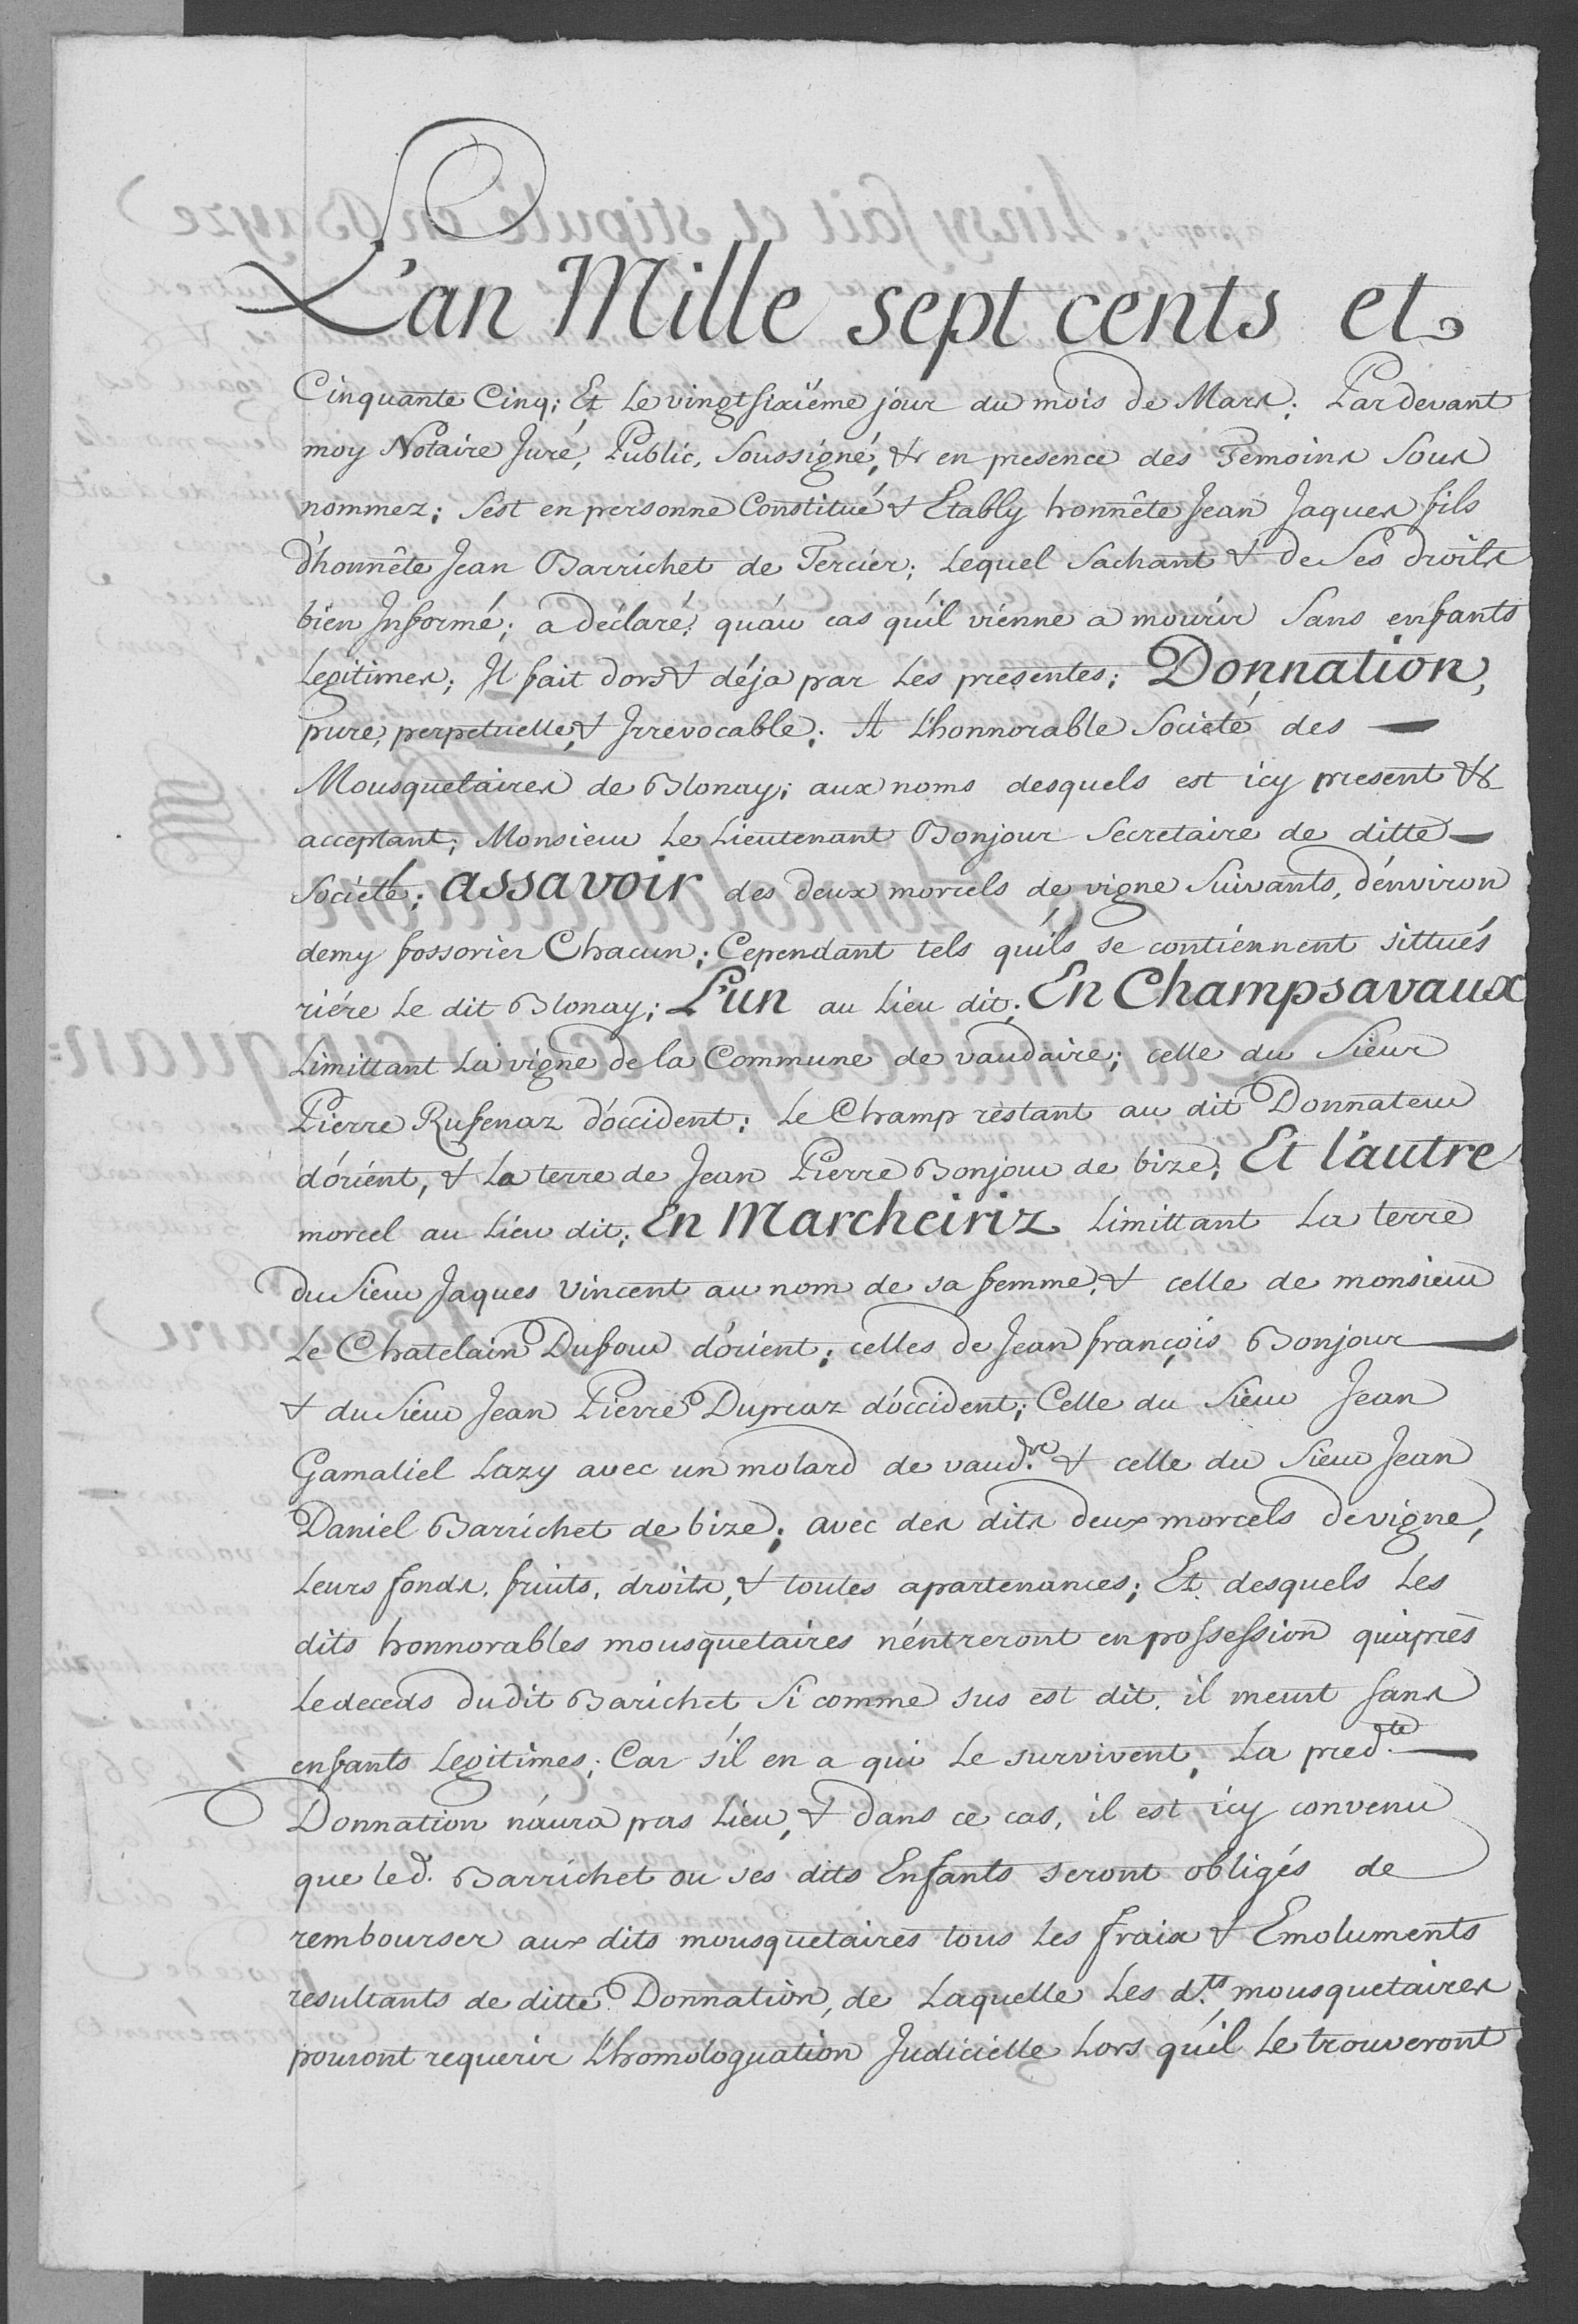 L'an Mille sept cents et
Cinquante Cinq; Et le vingt sixième jour du mois de Mars; Par devant
moy Notaire Juré, Public, Soussigné, & en presence des Temoins Sous
nommez; s'est en personne Constitué & Etably honnête Jean Jaques fils
d'honnête Jean Barrichet de Tercier; Lequel Sachant & de Ses droits
bien Informé; a déclaré, qu'au cas qu'il vienne a mourir Sans enfants
Legitimes; Il fait dors & déja par les presentes; Donnation,
pure, perpetuelle, & Irrevocable; A L'honnorable Societé des
Mousquetaires de Blonay; aux noms desquels est icy present &
acceptant; Monsieur Le Lieutenant Bonjour Secretaire de ditte
Societé; assavoir des deux morcels de vigne Suivants, d'environ
demy fossorier Chacun; Cependant tels qu'ils se contiennent sittués
riére Le dit Blonay; L'un au Lieu dit; En Champsavaux
Limittant La vigne de la Commune de vaudaire; celle du Sieur
Pierre Rufenaz d'occident; Le Champ restant au dit Donnateur
d'orient, & La terre de Jean Pierre Bonjour de bize; Et l'autre
morcel au Lieu dit; En Marcheiriz Limittant La terre
du Sieur Jaques Vincent au nom de sa femme, & celle de monsieur
Le Chatelain Dufour d'orient; celles de Jean françois Bonjour
& du Sieur Jean Pierre Dupraz d'occident; Celle du Sieur Jean
Gamaliel Lazy avec un molard de vaud.re & celle du Sieur Jean
Daniel Barrichet de bize; avec des dits deux morcels de vigne,
Leurs fonds, fruits, droits, & toutes apartenances; Et desquels Les
dits honnorables mousquetaires n'entreront en possession qu'aprés
Le deceds dudit Barichet Si comme sus est dit, il meurt Sans
enfants Legitimes; Car s'il en a qui Le survivent, La pred.te
Donnation n'aura pas Lieu, & dans ce cas, il est icy convenu
que led. Barrichet ou ses dits Enfants seront obligés de
rembourser aux dits mousquetaires tous Les fraix & Emoluments
resultants de ditte Donnation, de Laquelle Les d.ts mousquetaires
pouront requerir L'homologuation Judicielle Lors qu'il Le trouveront